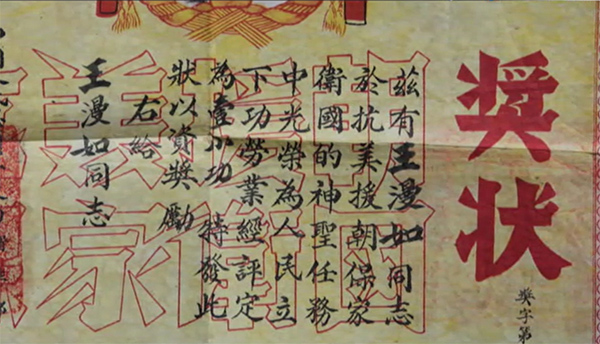 奬状
奬字第
兹有王漫如同志
於抗美援朝保家
衛國的神聖任務
中光榮為人民立
下功勞業經評定
為壹小功 特發此
狀以資奬勵
右給
王漫如同志